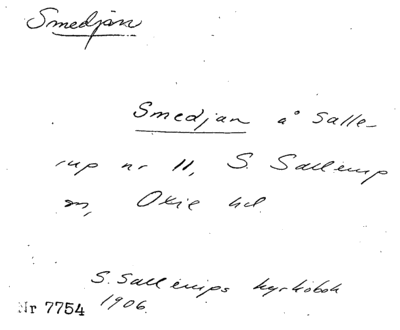 Smedjan
Smedjan å Salle-
rup nr 11, S. Sallerup
sn, Oxie hd.
S. Sallerups kyrkobok
1906.
Nr 7754